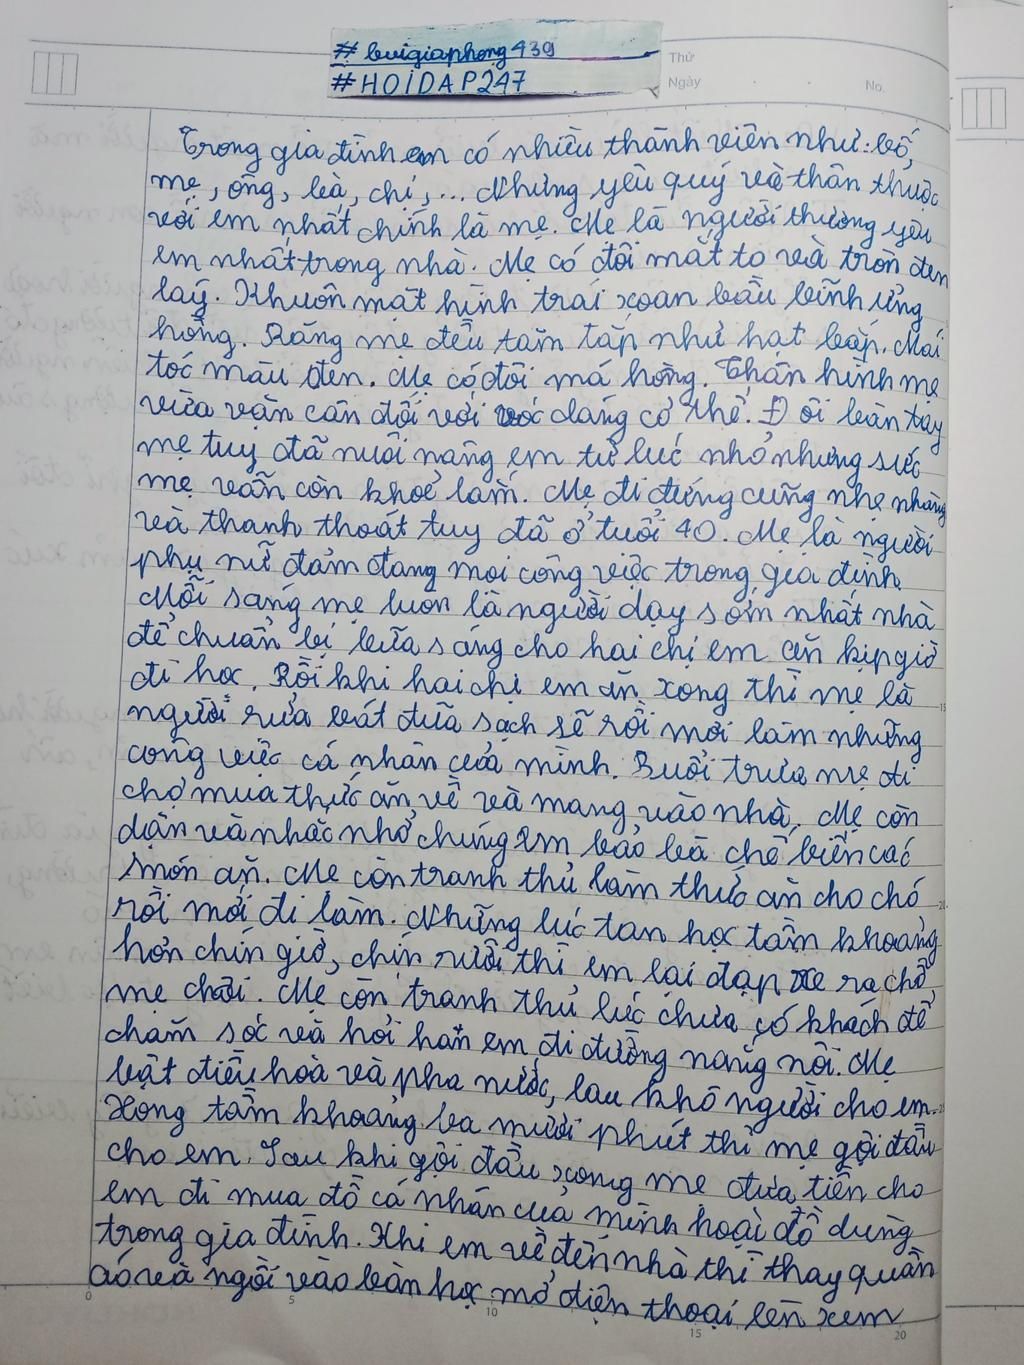 #buigiaphong439
#HOIDAP247
Thứ
Ngày
No.
Trong gia đình em có nhiều thành viên như: bố,
mẹ, ông, bà, chị,... Nhưng yêu quý và thân thuộc
với em nhất chính là mẹ. Mẹ là người thương yêu
em nhất trong nhà. Mẹ có đôi mắt to và tròn đen
láy. Khuôn mặt hình trái xoan bầu bĩnh ửng
hồng. Răng mẹ đều tăm tắp như hạt bắp. Mái
tóc màu đen. Mẹ có đôi má hồng. Thân hình mẹ
vừa vặn cân đối với vóc dáng cơ thể. Đôi bàn tay
mẹ tuy đã nuôi nấng em từ lúc nhỏ nhưng sức
mẹ vẫn còn khoẻ lắm. Mẹ đi đứng cũng nhẹ nhàng
và thanh thoát tuy đã ở tuổi 40. Mẹ là người
phụ nữ đảm đang mọi công việc trong gia đình.
Mỗi sáng mẹ luôn là người dạy sớm nhất nhà
để chuẩn bị bữa sáng cho hai chị em ăn kịp giờ
đi học. Rồi khi hai chị em ăn xong thì mẹ là
người rửa bát đũa sạch sẽ rồi mới làm những
công việc cá nhân của mình. Buổi trưa mẹ đi
chợ mua thức ăn về và mang vào nhà. Mẹ còn
dặn và nhắc nhở chúng em bảo bà chế biến các
món ăn. Mẹ còn tranh thủ làm thức ăn cho chó
rồi mới đi làm. Những lúc tan học tầm khoảng
hơn chín giờ, chín rưỡi thì em lại đạp xe ra chỗ
mẹ chơi. Mẹ còn tranh thủ lúc chưa có khách để
chăm sóc và hỏi han em đi đường nắng nôi. Mẹ
bật điều hoà và pha nước, lau khô người cho em.
Xong tầm khoảng ba mươi phút thì mẹ gội đầu
cho em. Sau khi gội đầu xong mẹ đưa tiền cho
em đi mua đồ cá nhân của mình hoặc đồ dùng
trong gia đình. Khi em về đến nhà thì thay quần
áo và ngồi vào bàn học mở điện thoại lên xem
0 5 10 15 20